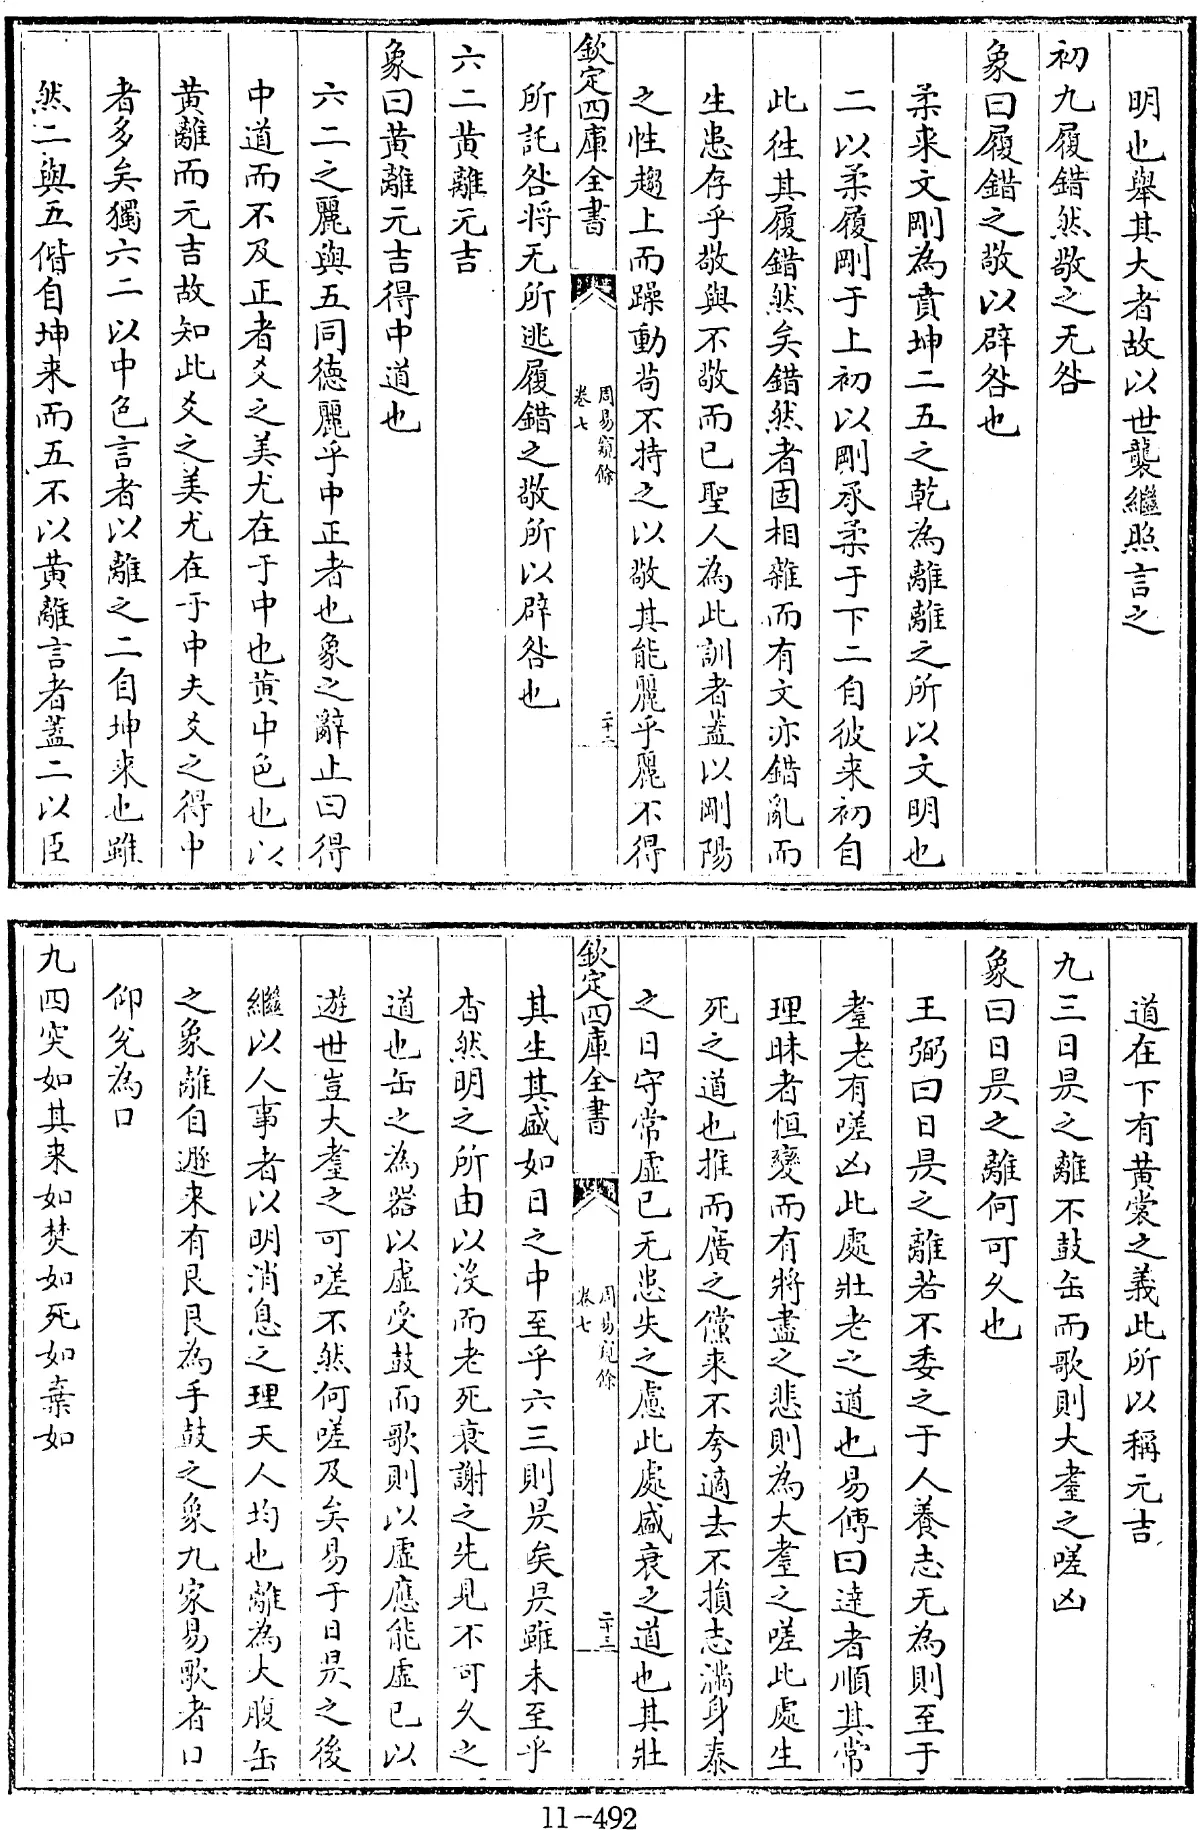 明也舉其大者故以世襲繼照言之
初九履錯然敬之无咎
象曰履錯之敬以辟咎也
柔来文剛為賁坤二五之乾為離離之所以文明也
二以柔履剛于上初以剛承柔于下二自彼来初自
此往其履錯然矣錯然者固相雜而有文亦錯亂而
生患存乎敬與不敬而已聖人為此訓者蓋以剛陽
之性趨上而躁動苟不持之以敬其能麗乎麗不得
欽定四庫全書
周易窺餘
卷七
二十二
所託咎将无所逃履錯之敬所以辟咎也
六二黄離元吉
象曰黄離元吉得中道也
六二之麗與五同德麗乎中正者也象之辭止曰得
中道而不及正者爻之美尤在于中也黄中色也以
黄離而元吉故知此爻之美尤在于中夫爻之得中
者多矣獨六二以中色言者以離之二自坤来也雖
然二與五偕自坤来而五不以黄離言者蓋二以臣
道在下有黄裳之義此所以稱元吉
九三日昃之離不鼓缶而歌則大耋之嗟凶
象曰日昃之離何可久也
王弼曰日昃之離若不委之于人養志无為則至于
耋老有嗟凶此處壯老之道也易傳曰達者順其常
理昧者恒變而有將盡之悲則為大耋之嗟此處生
死之道也推而廣之儻来不夸適去不損志滿身泰
之日守常虛已无患失之慮此處盛衰之道也其壯
欽定四庫全書
周易窺餘
卷七
二十三
其生其盛如日之中至乎六三則昃矣昃雖未至乎
杳然明之所由以沒而老死衰謝之先見不可久之
道也缶之為器以虛受鼓而歌則以虛應能虛已以
遊世豈大耋之可嗟不然何嗟及矣易于日昃之後
繼以人事者以明消息之理天人均也離為大腹缶
之象離自遯来有艮艮為手鼓之象九家易歌者口
仰兊為口
九四突如其来如焚如死如棄如
11-492